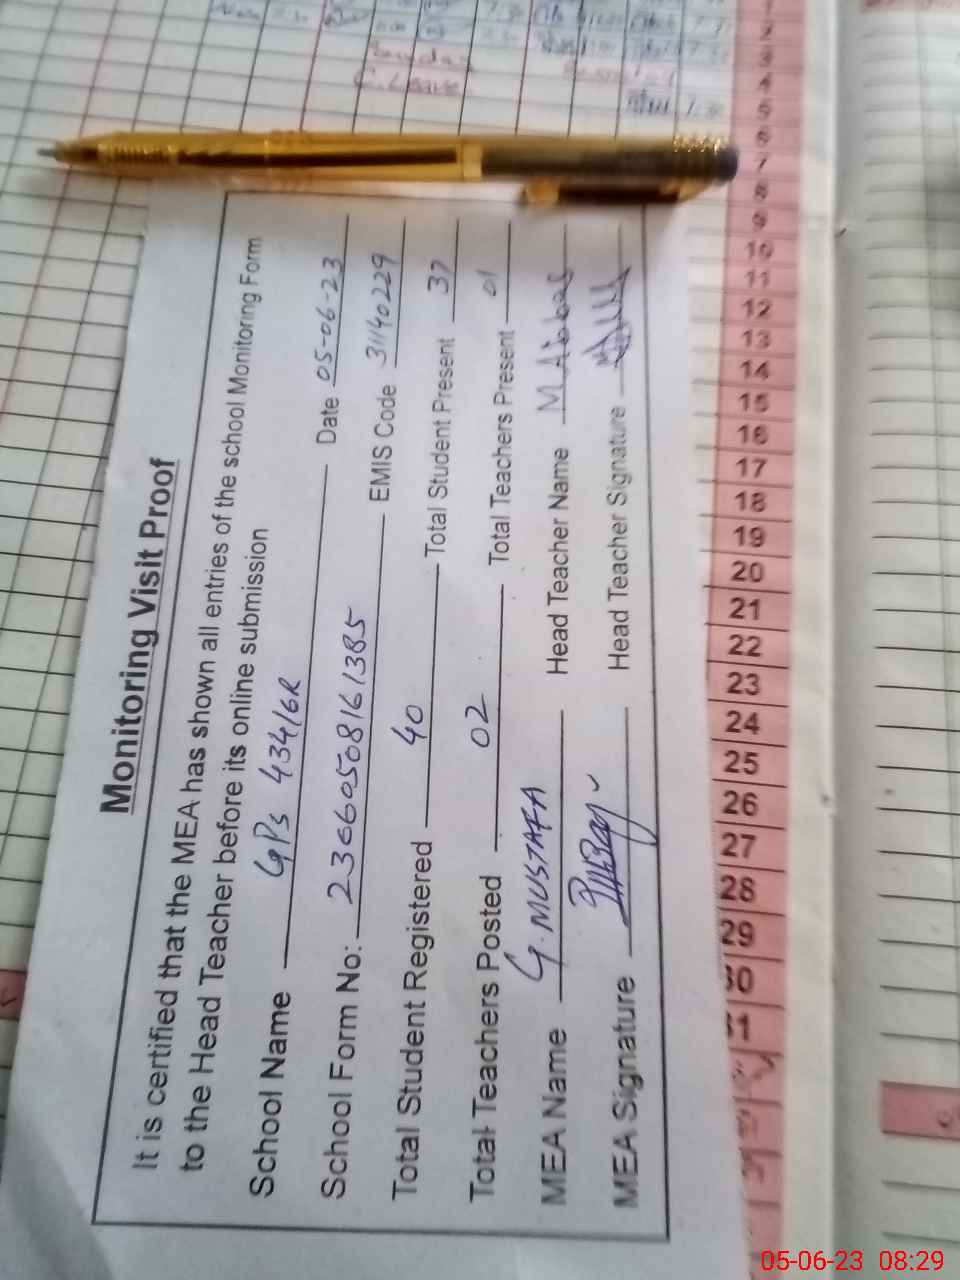 Monitoring Visit Proof
It is certified that the MEA has shown all entries of the school Monitoring Form
to the Head Teacher before its online submission
School Name GPS 434/6R Date 05-06-23
School Form No: 2366050816 1385 EMIS Code 31140229
Total Student Registered 40 Total Student Present 37
Total Teachers Posted 02 Total Teachers Present 01
MEA Name G. MUSTAFA Head Teacher Name M Abbas
MEA Signature Head Teacher Signature
Sunday
C. Leave
1
2
3
4
5
6
7
8
9
10
11
12
13
14
15
16
17
18
19
20
21
22
23
24
25
26
27
28
29
30
31
05-06-23 08:29